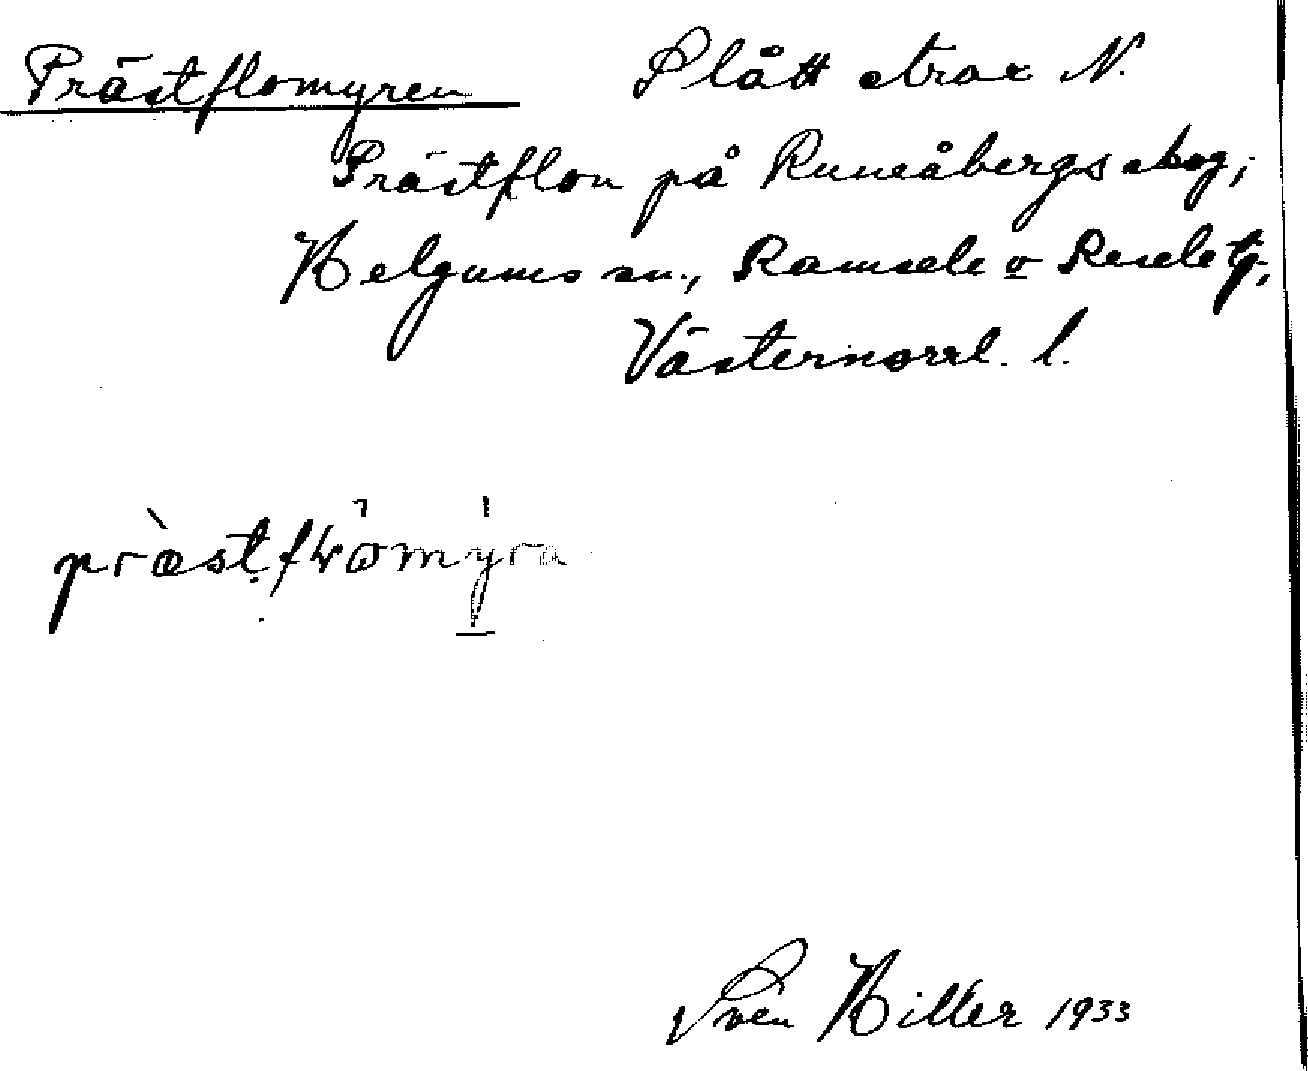 Prästflomyren Slått strax N.
Prästflon på Runsåbergs skog;
Helgums sn., Ramsele o Resele tg,
Västernorrl. l.
præst.
Sven Hiller 1933